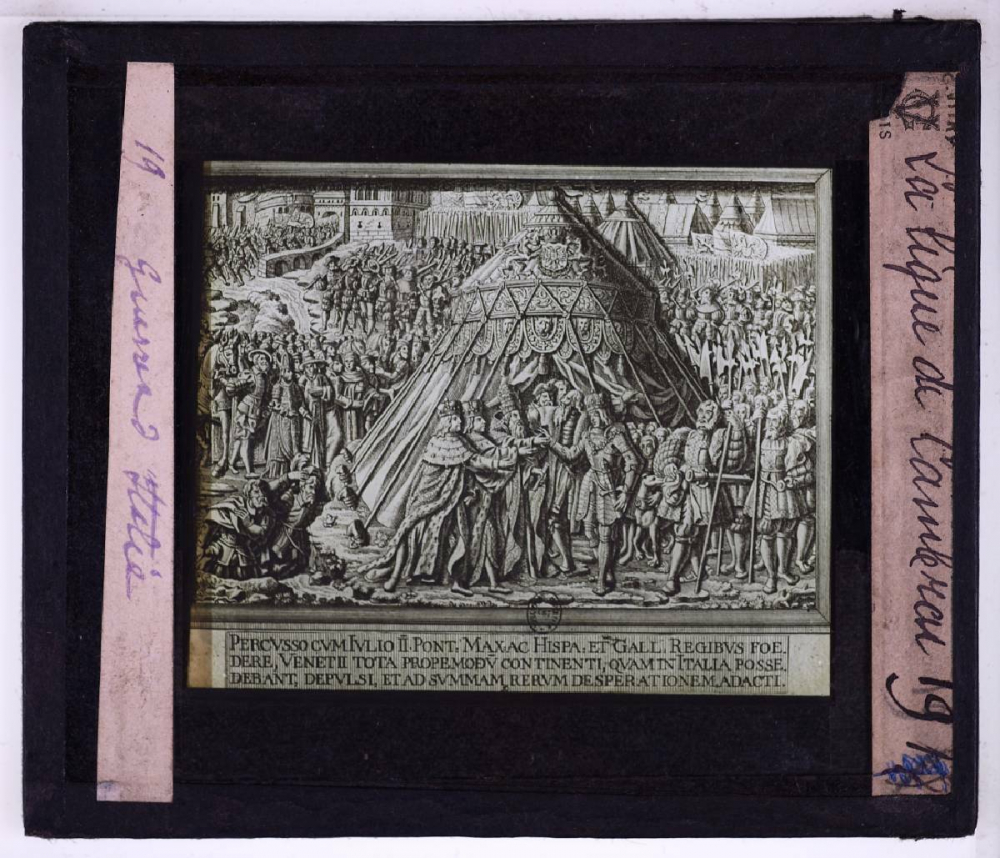 19 Guerres d'Italie
La ligue de Cambrai 19
PERCVSSO CVM IVLIO II. PONT. MAX. AC HISPA. ET GALL. REGIBVS FOE,
DERE, VENETII TOTA PROPEMODV CONTINENTI, QVAM IN ITALIA POSSE,
DEBANT, DEPVLSI, ET AD SVMMAM RERVM DESPERATIONEM ADACTI.